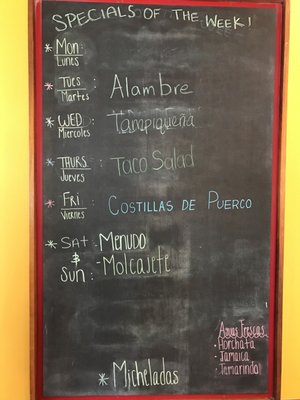 SPECIALS OF THE WEEK!
* Mon:
Lunes
* TUES : Alambre
Martes
* WED : Tampiqueña
Miercoles
* THURS : Taco Salad
Jueves
* FRI : COSTILLAS DE PUERCO
Viernes
* SAT - MENUDO
& - MOLCAJETE
SUN :
Aguas Frescas
• Horchata
• Jamaica
• Tamarindo
* Micheladas